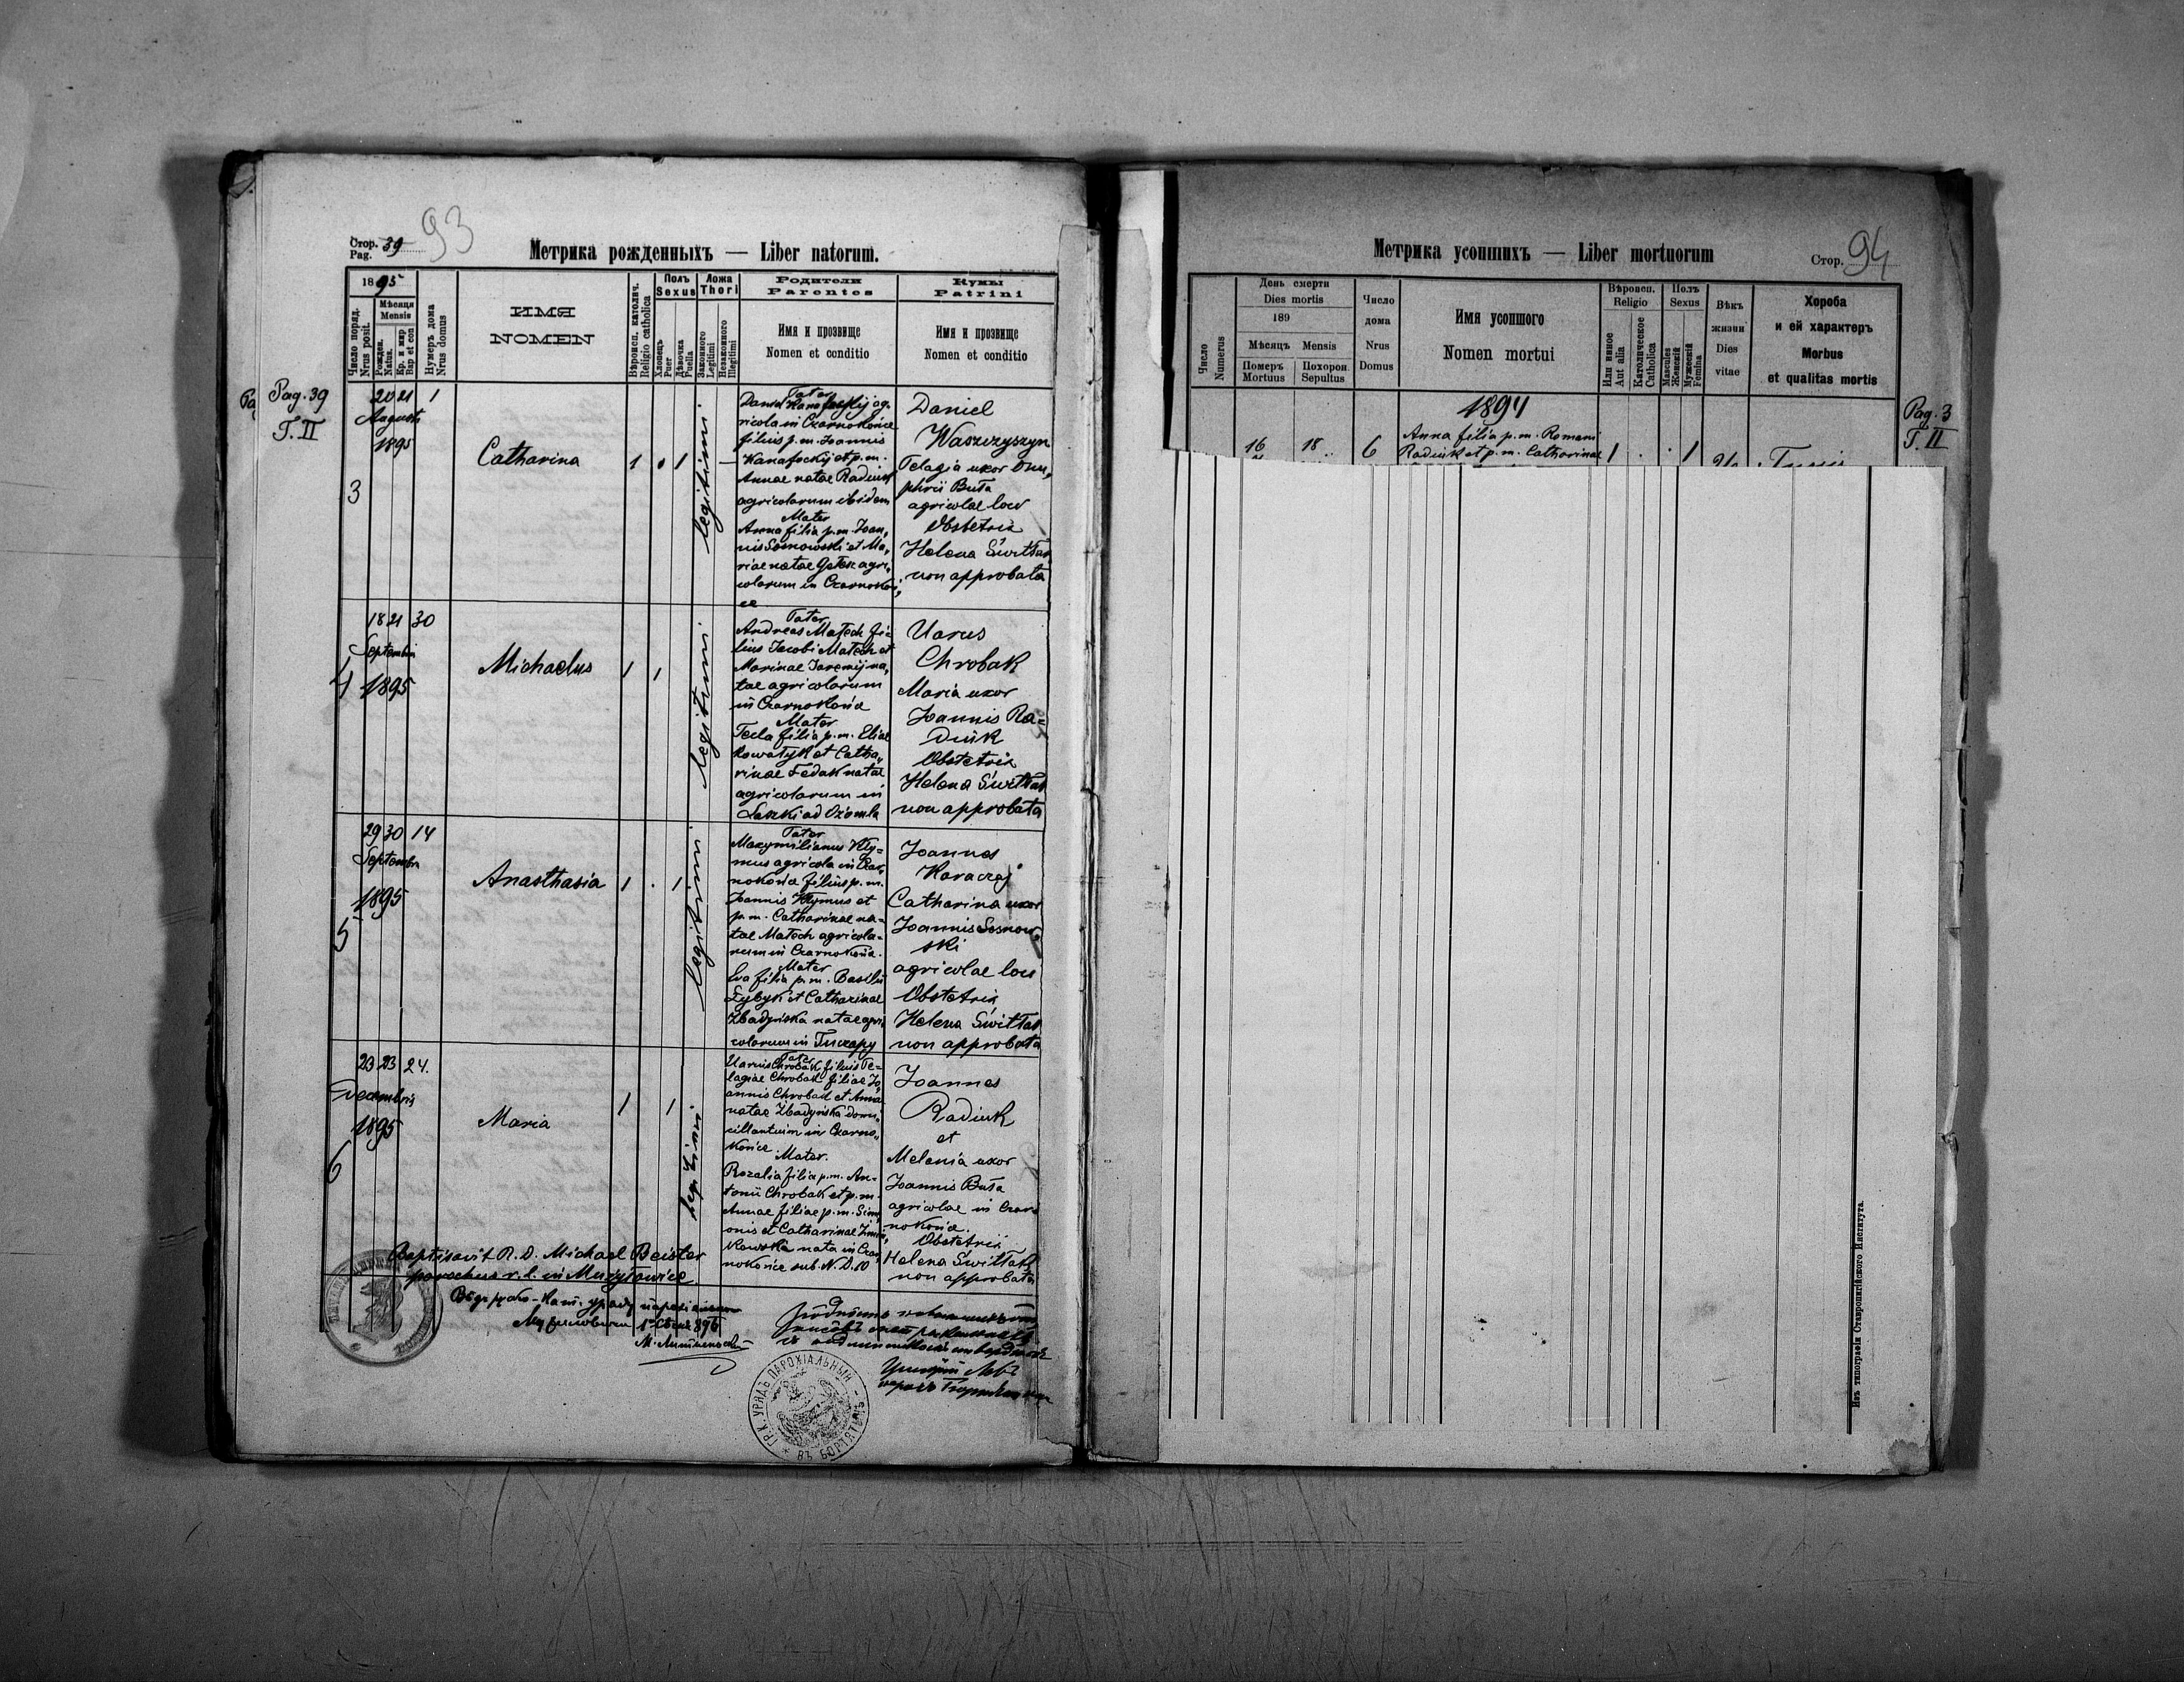 Стор. 39
Pag.
93
Метрика рожденныхъ — Liber natorum.
1895
Число поряд.
Nrus posit.
Мѣсяця
Mensis
Рожден.
Natus.
Кр. и мир
Bap et con
Нумеръ дома
Nrus domus
ИМЯ
NOMEN
Вѣроисп. католич.
Religio catholica
Полъ
Sexus
Хлопецъ
Puer
Дѣвочка
Puella
Ложа
Thori
Законного
Legitimi
Незаконного
Illegitimi
Родители
Parentes
Имя и прозвище
Nomen et conditio
Кумы
Patrini
Имя и прозвище
Nomen et conditio
Pag. 39
T. II
3
20 21 1
Augusti
1895
Catharina
1 1
legitimi
Pater
Daniel Kanafockij ag-
ricola in Czarnokońce
filius p.m. Joannis
Kanafockij et p.m.
Annae natae Radiuk
agricolarum ibidem
Mater
Anna filia p.m. Joan,
nis Sosnowski et Ma,
riae natae agri,
colarum in Czarnokoń,
ce
Daniel
Waszczyszyn
Pelagia uxor Onu,
phrii Buła
agricolae loci
Obstetrix
Helena Świtłak
non approbata
4
18 21 30
Septembri
1895
Michaelus
1 1
legitimi
Pater
Andreas Matech fi-
lius Jacobi Matech et
Marinae Jaremij na,
tae agricolarum
in Czarnokońce
Mater
Tecla filia p.m. Eliae
Kowałyk et Catha,,
rinae Fedak natae
agricolarum in
Laszki ad Ożomla
Uarus
Chrobak
Maria uxor
Joannis Ra=
diuk
Obstetrix
Helena Świtłak
non approbata
5
29 30 14
Septembri
1895
Anasthasia
1 . 1
legitimi
Pater
Maxymilianus Kly=
mus agricola in Czar,
nokońce filius p.m.
Joannis Klymus et
p.m. Catharinae na=
tae Matech agricola=
rum in Czarnokońce.
Mater
Eva filia p.m. Basilii
Zybyk et Catharinae
Zbadyńska natae agri
colarum in Tuczapy
Joannes
Karaczaj
Catharina uxor
Joannis Sosnow,
ski
agricolae loci
Obstetrix
Helena Świtłak
non approbata
6
23 23 24.
Decembris
1895
Maria
1 1
legitimi
Pater
Uarus Chrobak filius Pe=
lagiae Chrobak filiae Jo,
annis Chrobak et Annae
natae Zbadyńska domi,
cillantium in Czarno,,
końce
Mater.
Rozalia filia p.m. An=
tonii Chrobak et p.m.
Annae filiae p.m. Sim,
onis et Catharinae
nata in Czar,
nokońce sub. N. D. 10
Joannes
Radiuk
et
Melania uxor
Joannis Buła
agricolae in Czar
nokońce.
Obstetrix
Helena Świtłak
non approbata
Baptisavit R. D. Michael Beister
parochus r. l. in Mużyłowice
ГР.К. УРЯДЪ ПАРОХІАЛЬНЫЙ
ВЪ БОРТЯТИНѢ
Метрика усопшихъ — Liber mortuorum
Стор. 94
Число
Numerus
День смерти
Dies mortis
189
Мѣсяцъ Mensis
Померъ
Mortuus
Похорон.
Sepultus
Число
дома
Nrus
Domus
Имя усопшого
Nomen mortui
Вѣроисп.
Religio
Или иное
Aut alia
Католическое
Catholica
Полъ
Sexus
Masculus
Женскій
Мужескій
Femina
Вѣкъ
жизни
Dies
vitae
Хороба
и ей характеръ
Morbus
et qualitas mortis
Pag. 3
T. II
1894
16 18 6
Anna filia p.m. Romani
Radiuk et p.m. Catharinae
1 . . 1
Изъ типографіи Ставропигійского Института